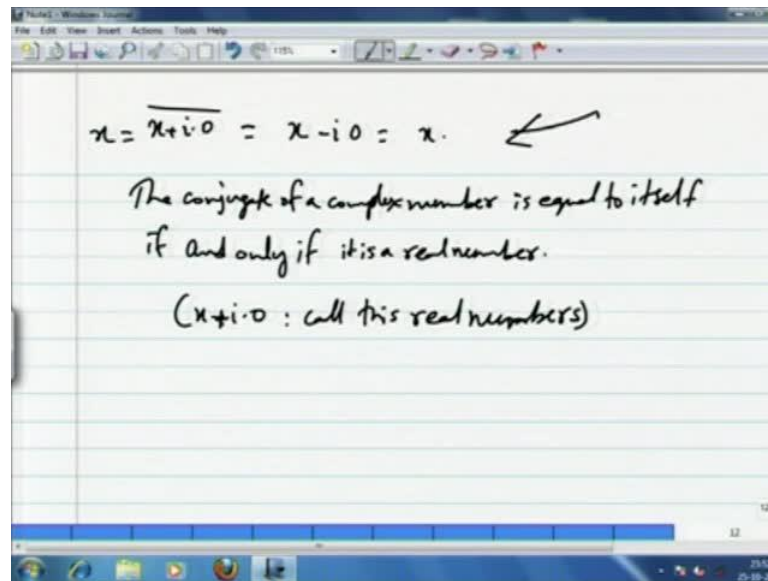 Note1 - Windows Journal
File Edit View Insert Actions Tools Help
115%
x = \overline{x+i·0} = x - i0 = x.
The conjugate of a complex number is equal to itself
if and only if it is a real number.
(x+i·0 : call this real numbers)
12